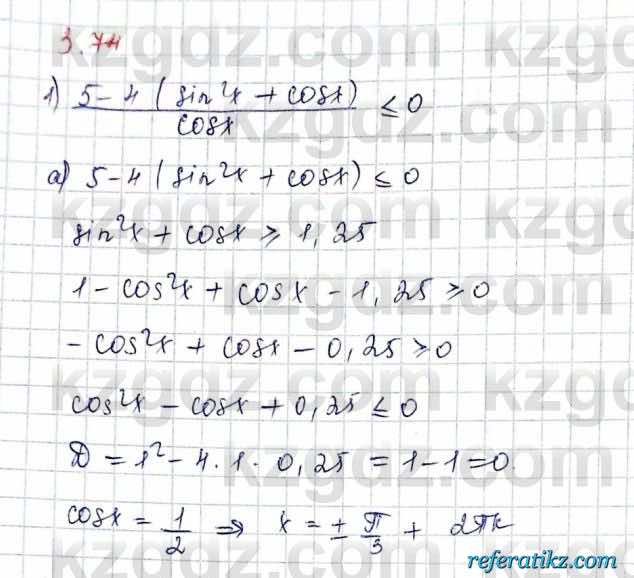 3.74
1) (5-4(sin²x + cosx))/cosx ≤ 0
а) 5-4(sin²x + cosx) ≤ 0
sin²x + cosx ≥ 1,25
1 - cos²x + cosx - 1,25 ≥ 0
- cos²x + cosx - 0,25 ≥ 0
cos²x - cosx + 0,25 ≤ 0
D = 1² - 4·1·0,25 = 1-1=0
cosx = 1/2 ⇒ x = ± π/3 + 2πk
kzgdz.com
referatikz.com